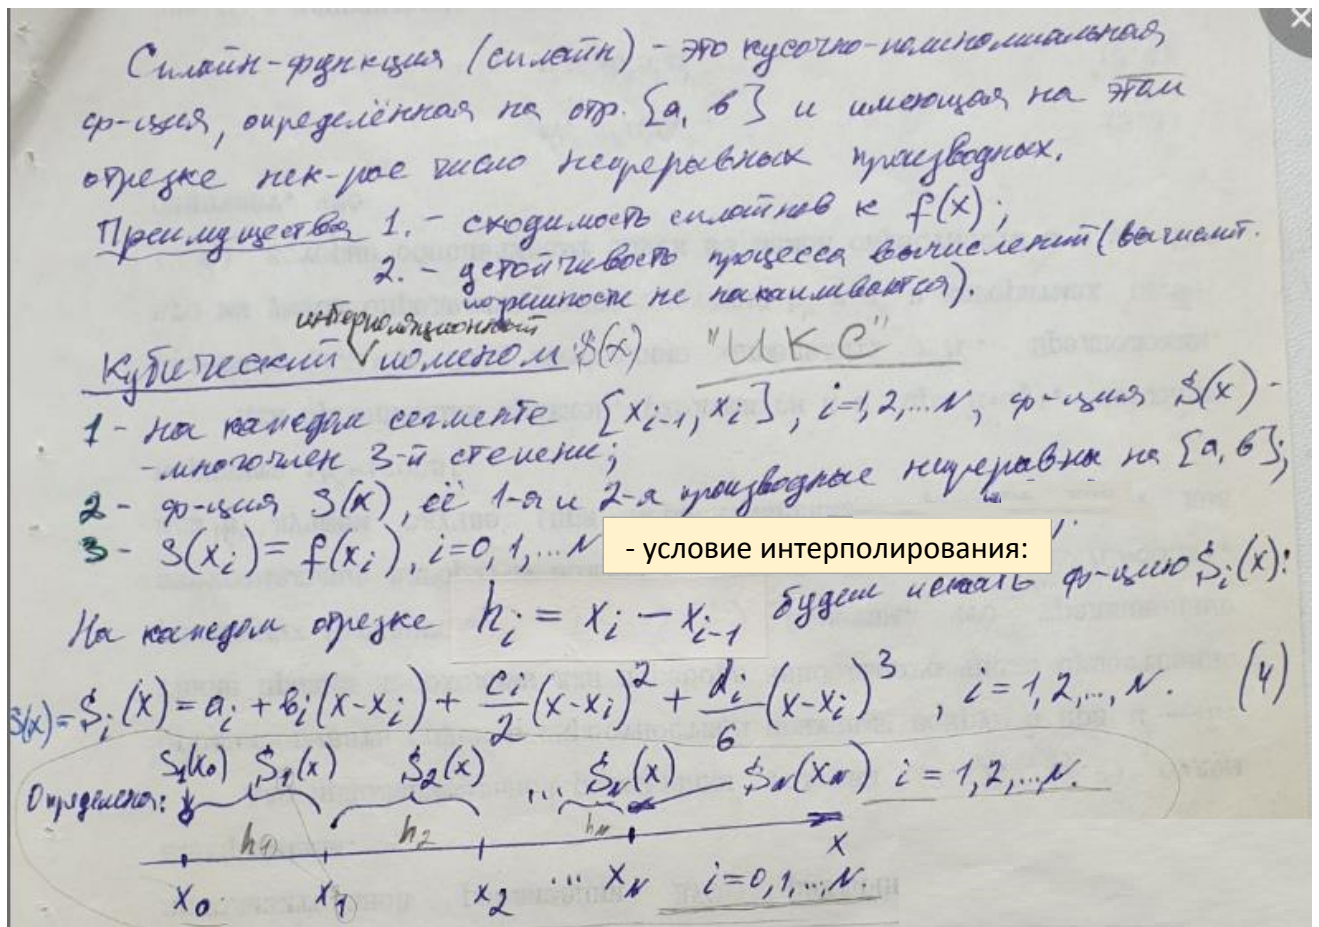 Сплайн-функция (сплайн) - это кусочно-полиномиальная
ф-ция, определённая на отр. [a, b] и имеющая на этом
отрезке нек-рое число непрерывных производных.
Преимущества 1. - сходимость сплайнов к f(x);
2. - устойчивость процесса вычислений (вычислит.
погрешности не накапливаются).
интерполяционный
Кубический ✓ полином S(x) "ИКС"
1 - на каждом сегменте [x_{i-1}, x_i], i=1,2,...N, ф-ция S(x) -
- многочлен 3-й степени;
2 - ф-ция S(x), её 1-я и 2-я производные непрерывны на [a, b];
3 - S(x_i) = f(x_i), i=0,1,...N - условие интерполирования:
На каждом отрезке h_i = x_i - x_{i-1} будем искать ф-цию S_i(x):
S(x) = S_i(x) = a_i + b_i(x-x_i) + c_i/2 (x-x_i)^2 + d_i/6 (x-x_i)^3, i=1,2,...,N. (4)
S_1(x_0) S_1(x) S_2(x) ... S_N(x) S_N(x_N) i=1,2,...N.
Определена:
h_1 h_2 h_N x
x_0 x_1 x_2 ... x_N i=0,1,...,N.